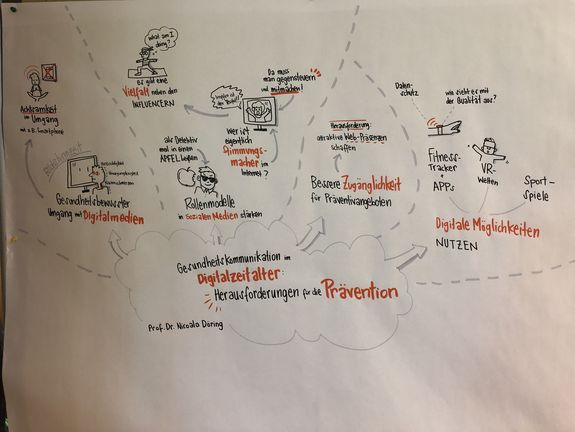 Achtsamkeit
im Umgang
mit z.B. Smartphone
Gesundheitsbewusster
Umgang mit Digitalmedien
what am I
doing?
Es gibt eine
Vielfalt neben den
INFLUENCERN
als Detektiv
mal in einen
APFEL beißen
Rollenmodelle
in sozialen Medien stärken
Da muss
man gegensteuern
und mitmachen!
Wer ist
eigentlich
Stimmungs-
macher im
Internet?
Herausforderung:
attraktive Web-Präsenzen
schaffen
Bessere Zugänglichkeit
für Präventivangeboten
Daten-
schutz
wie sieht es mit
der Qualität aus?
Fitness-
Tracker
+
APPs
VR-
Welten
Sport-
Spiele
Digitale Möglichkeiten
NUTZEN
Gesundheitskommunikation im
Digitalzeitalter:
Herausforderungen für die Prävention
Prof. Dr. Nicola Döring